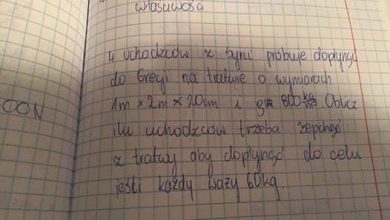 własuwość
4 uchodzców z Syrii próbuje dopłynąć
do Grecji na tratwie o wymiarach
1m × 2m × 20cm i g= 800 kg/m3. Oblicz
ilu uchodzców trzeba zepchnąć
z tratwy aby dopłynąć do celu
jeśli każdy waży 60kg.